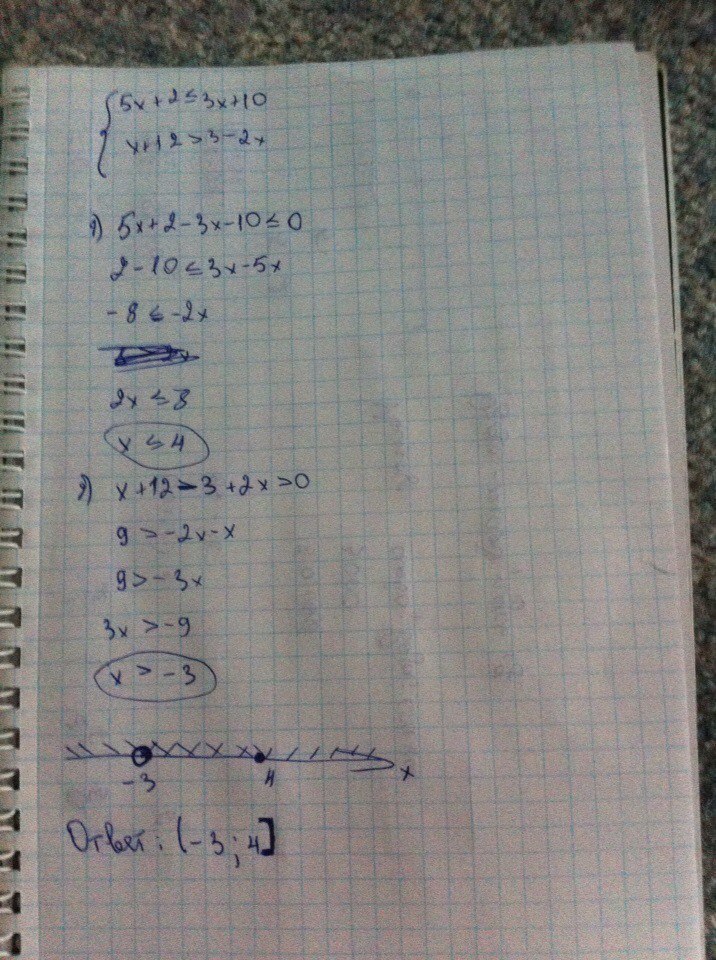 5x+2≤3x+10
x+12>3-2x
1) 5x+2-3x-10≤0
2-10≤3x-5x
-8≤-2x
2x≤8
x≤4
2) x+12-3+2x>0
9>-2x-x
9>-3x
3x>-9
x>-3
-3 4 x
Ответ: (-3; 4]